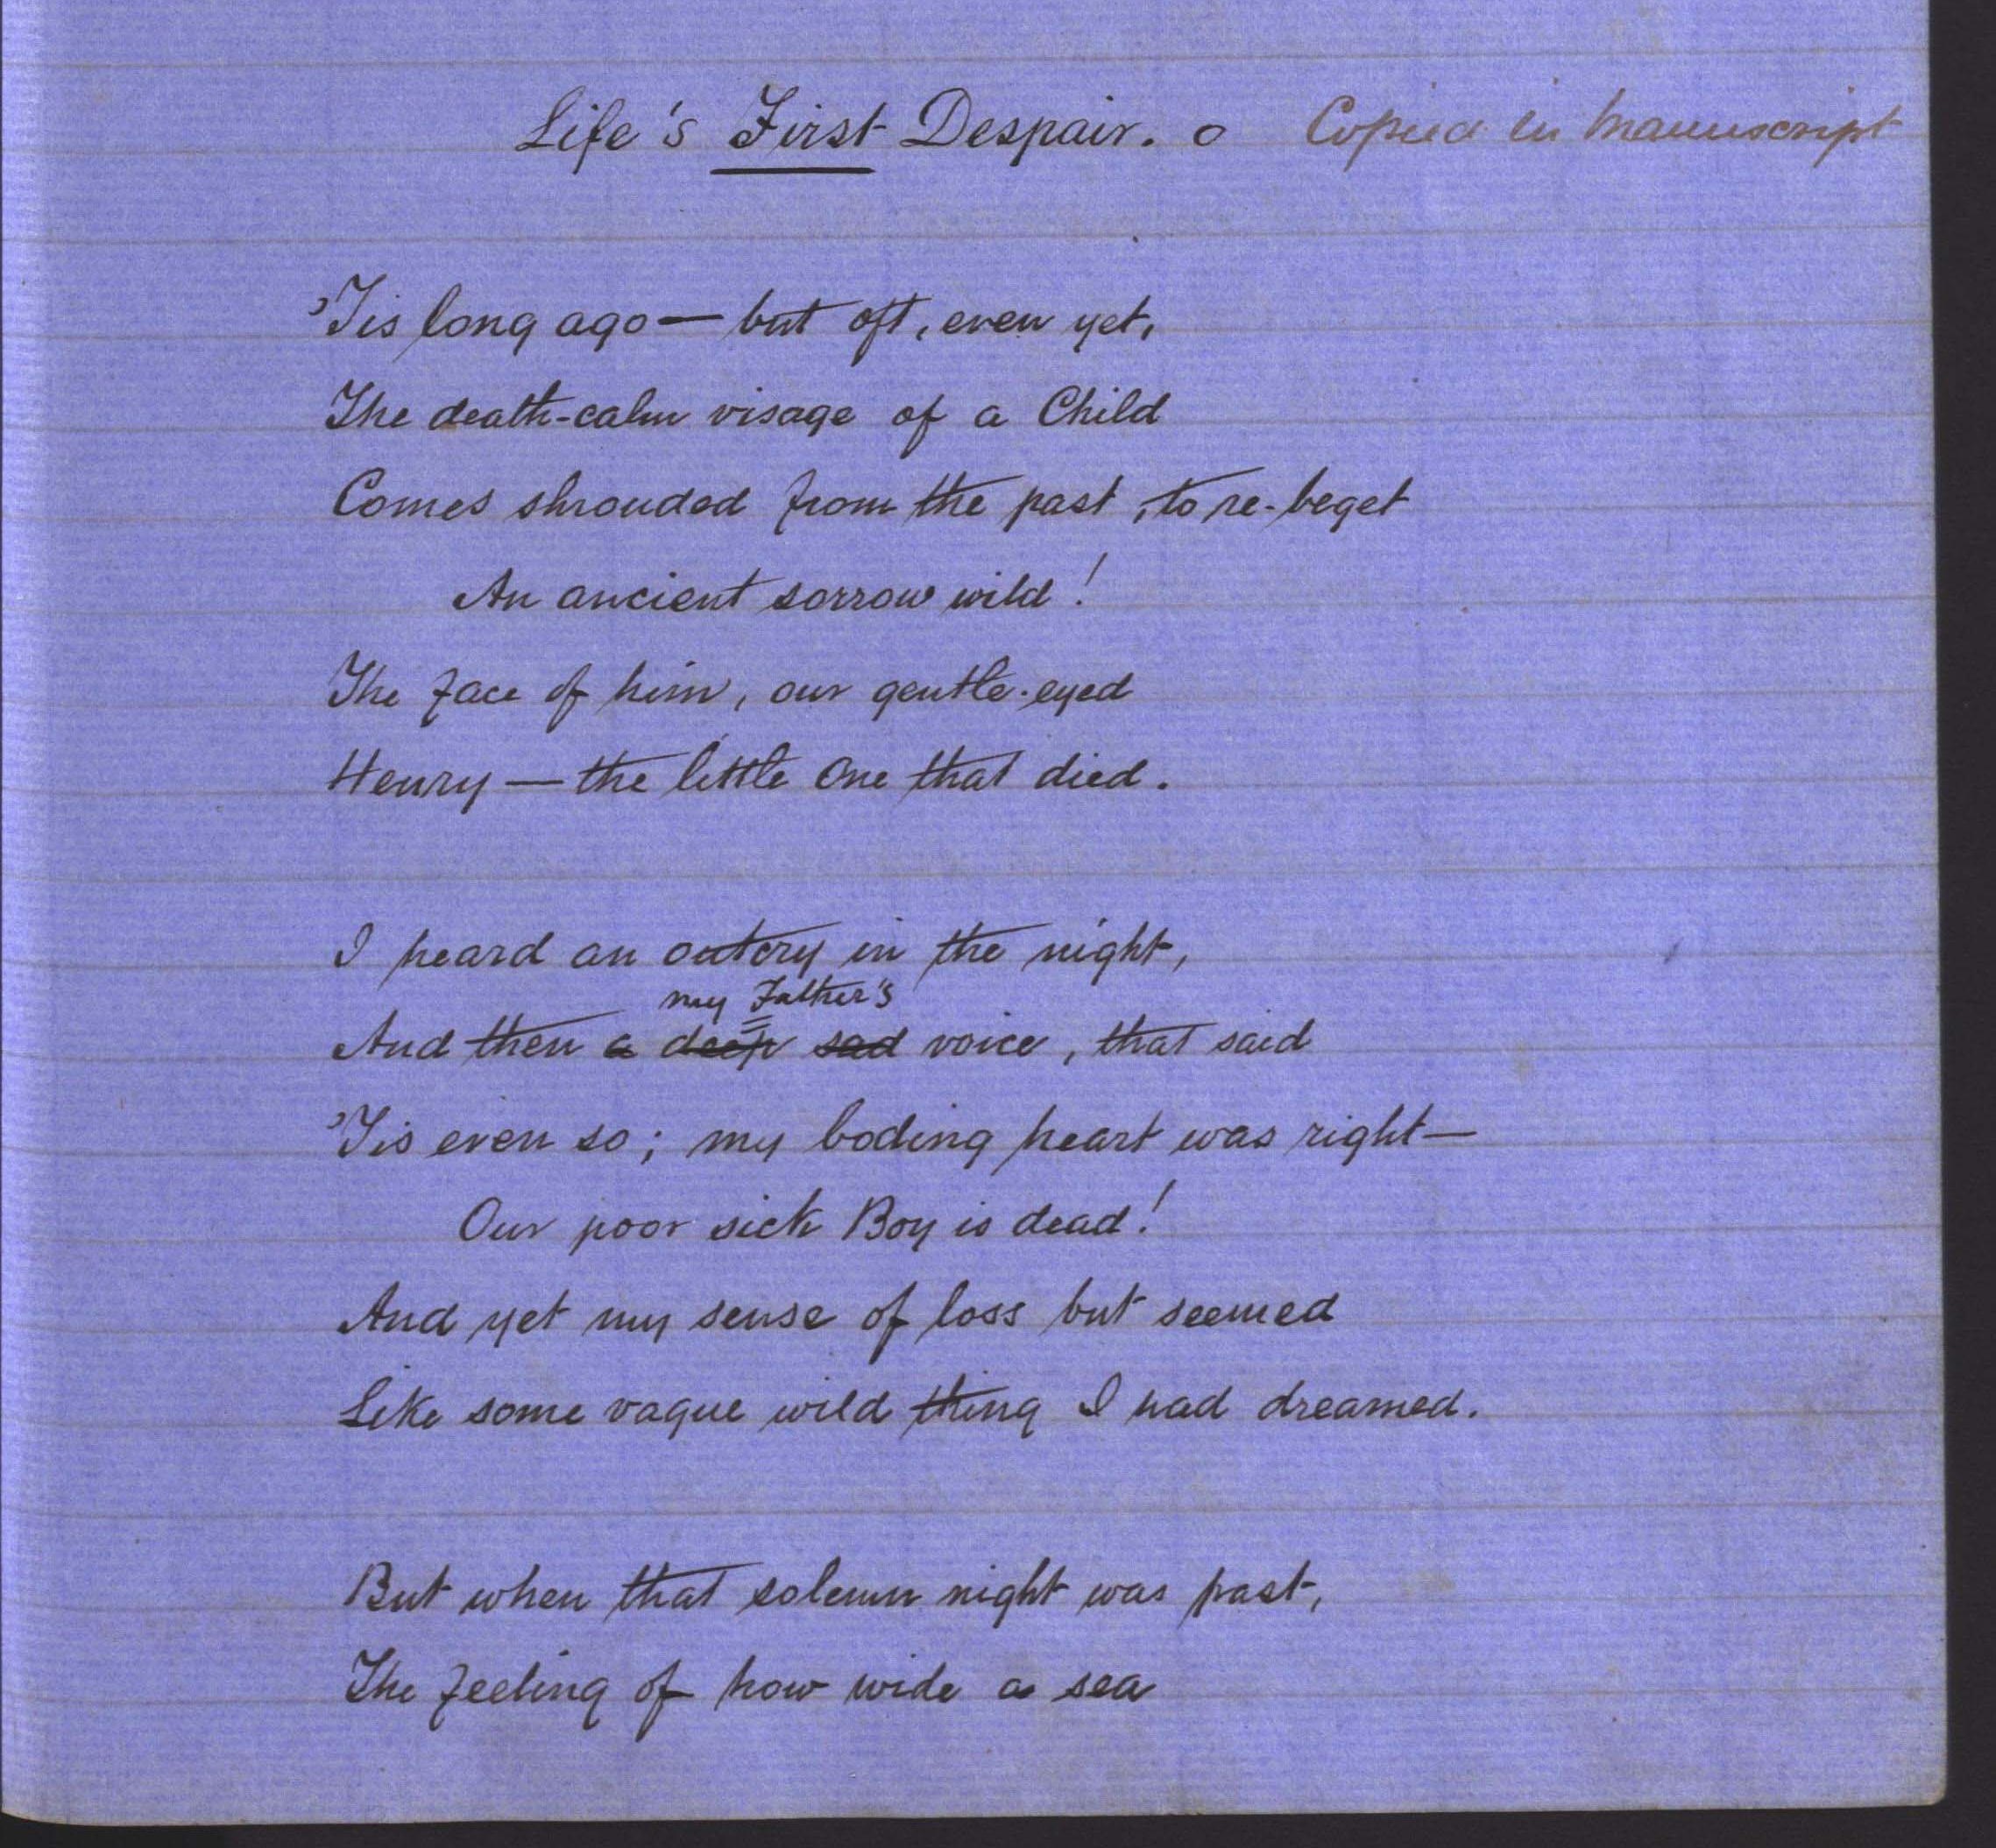 Life's First Despair. o Copied in Manuscript
'Tis long ago — but oft, even yet,
The death-calm visage of a Child
Comes shrouded from the past, to re-beget
An ancient sorrow wild!
The face of him, our gentle-eyed
Henry — the little One that died.
I heard an outcry in the night,
my Father's
And then a deep sad voice, that said
'Tis even so; my boding heart was right—
Our poor sick Boy is dead!
And yet my sense of loss but seemed
Like some vague wild thing I had dreamed.
But when that solemn night was past,
The feeling of how wide a sea